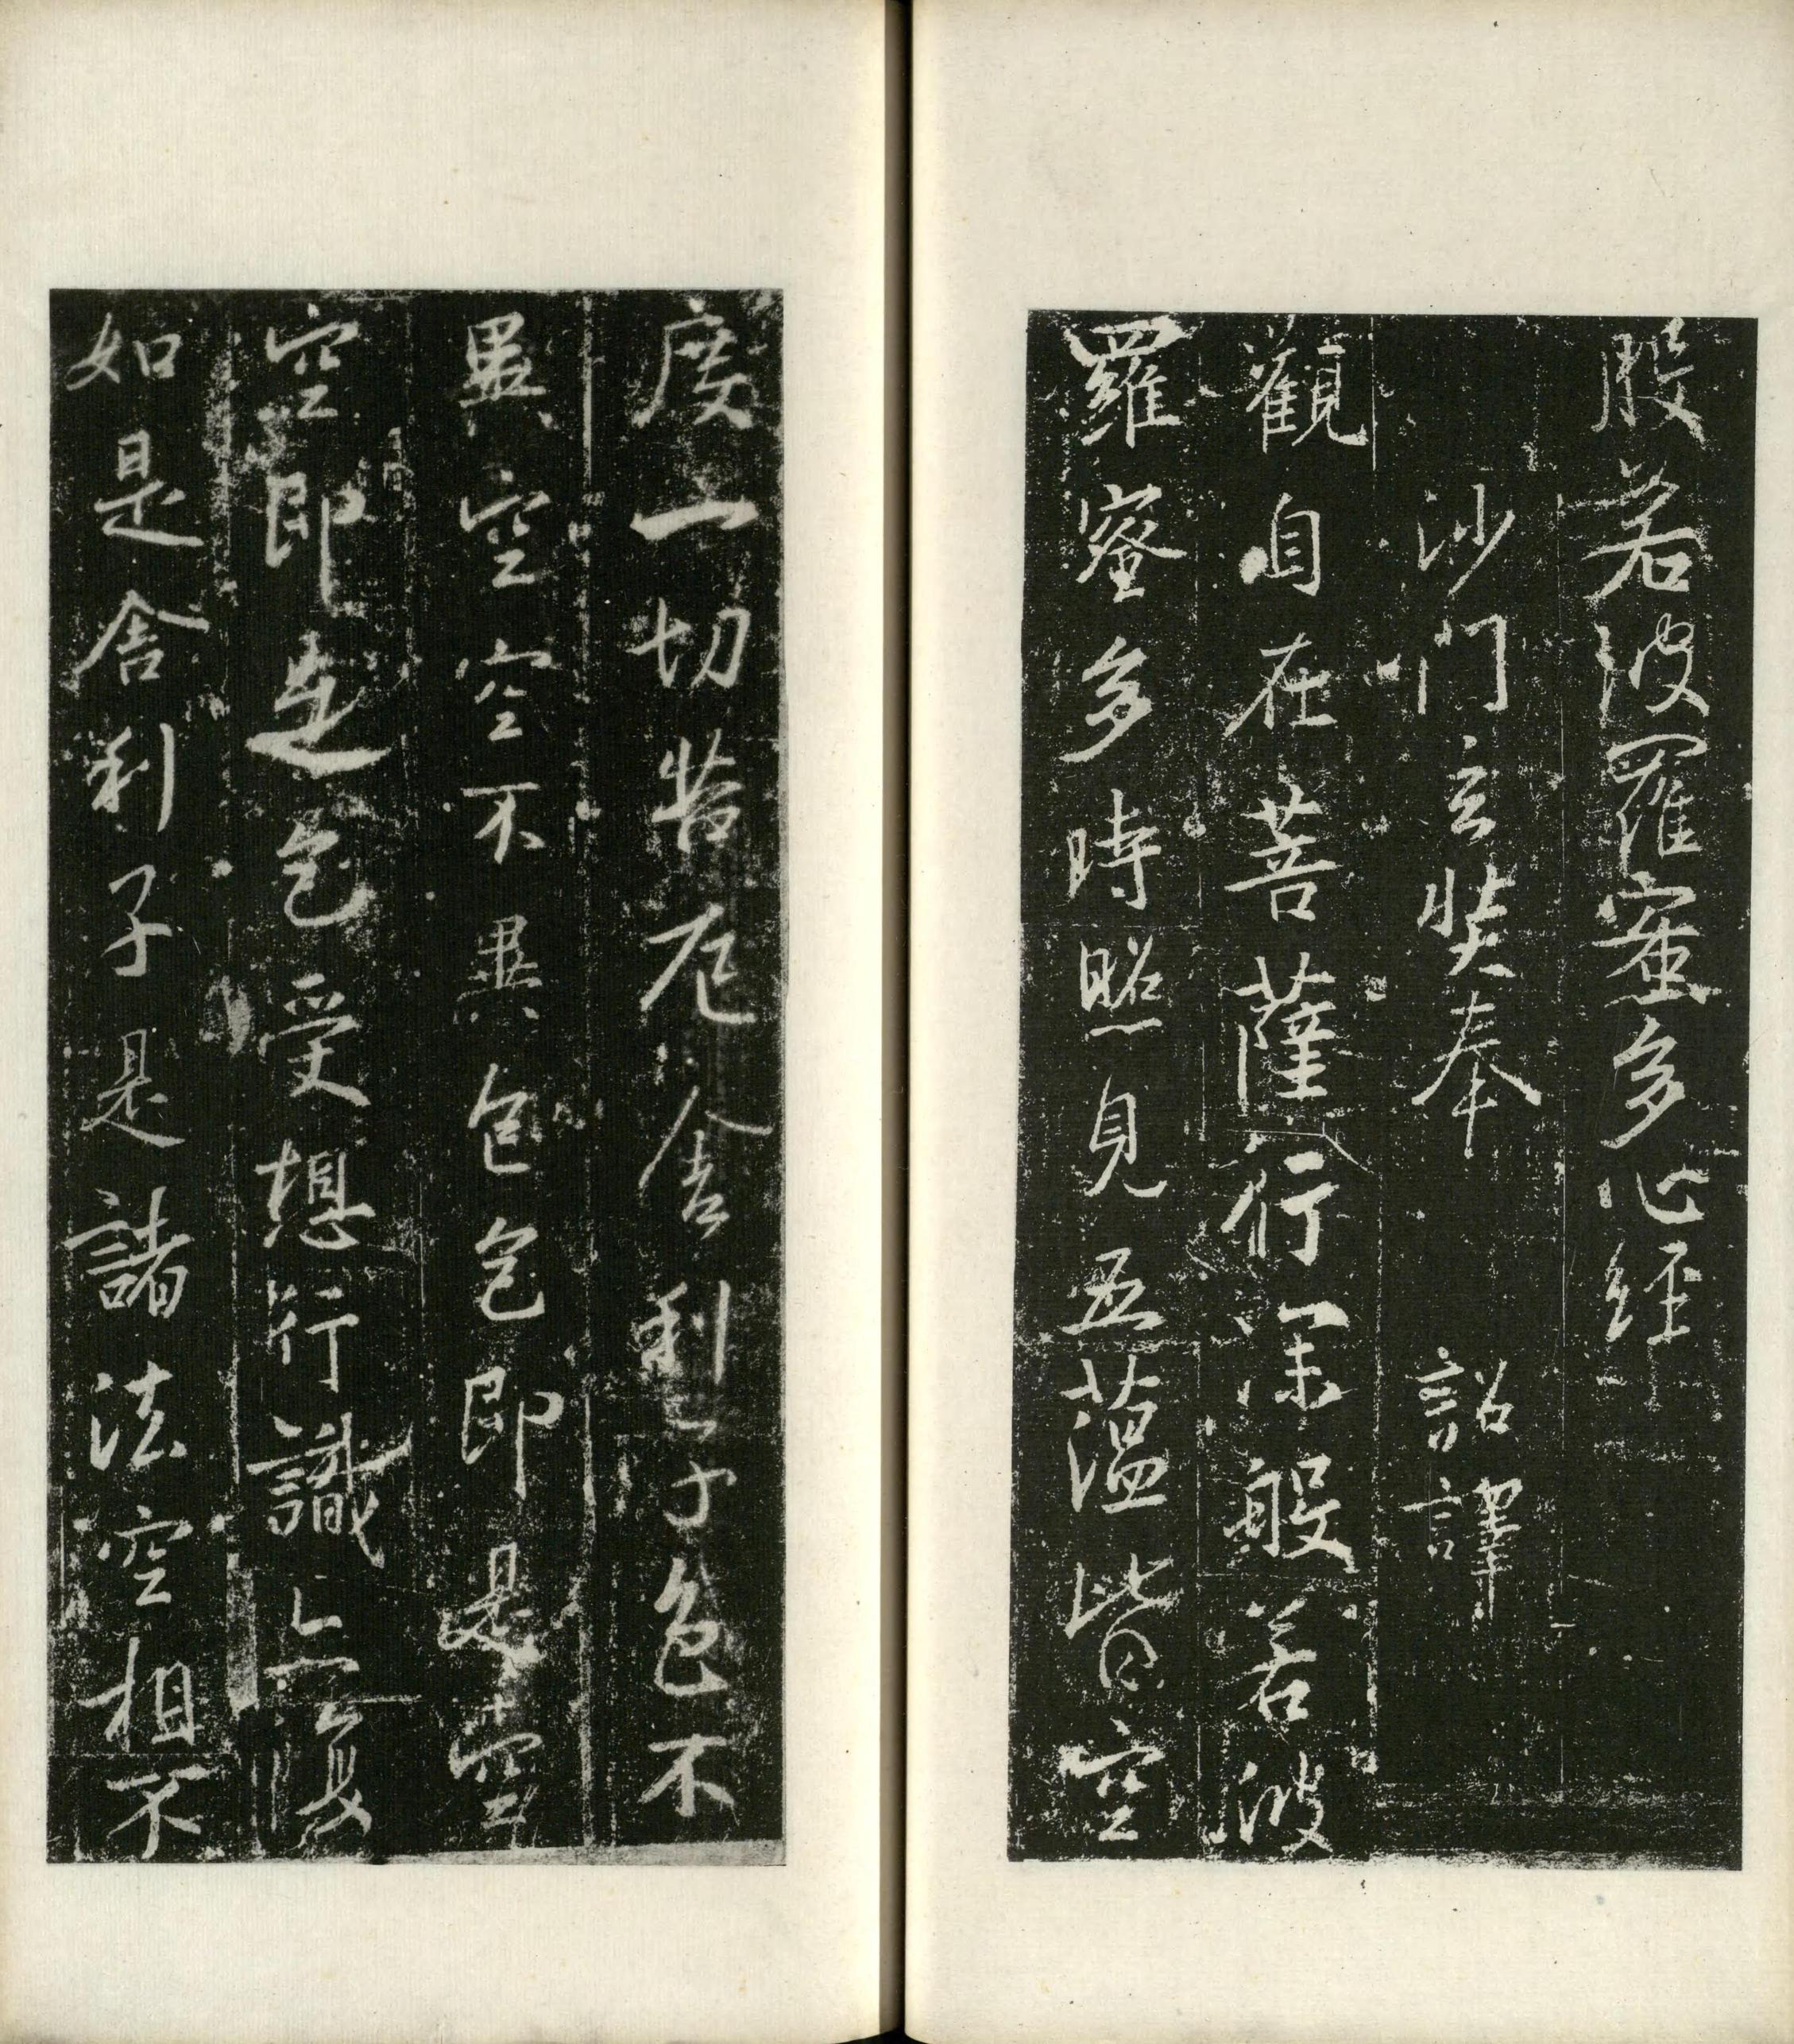 般若波羅蜜多心経
沙門玄奘奉　詔譯
觀自在菩薩行深般若波
羅蜜多時照見五蘊皆空
度一切苦厄舍利子色不
異空空不異色色即是空
空即是色受想行識亦復
如是舍利子是諸法空相不